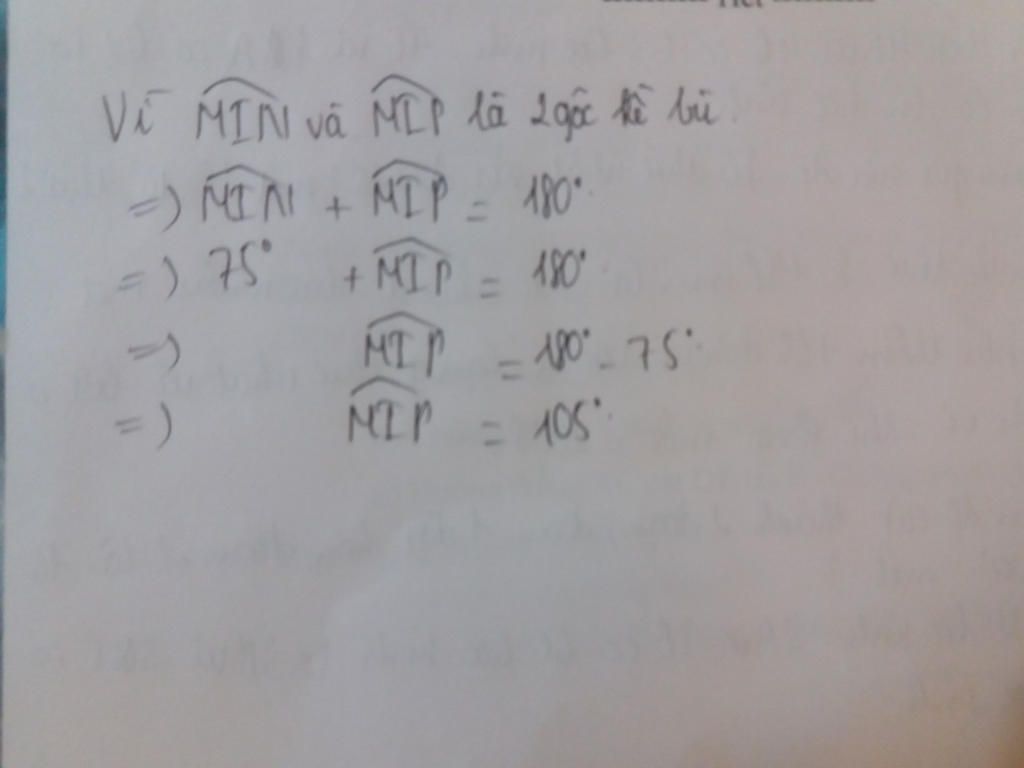 Vì MIN và MIP là 2 góc kề bù.
=) MIN + MIP = 180°
=) 75° + MIP = 180°
=) MIP = 180° - 75°
=) MIP = 105°